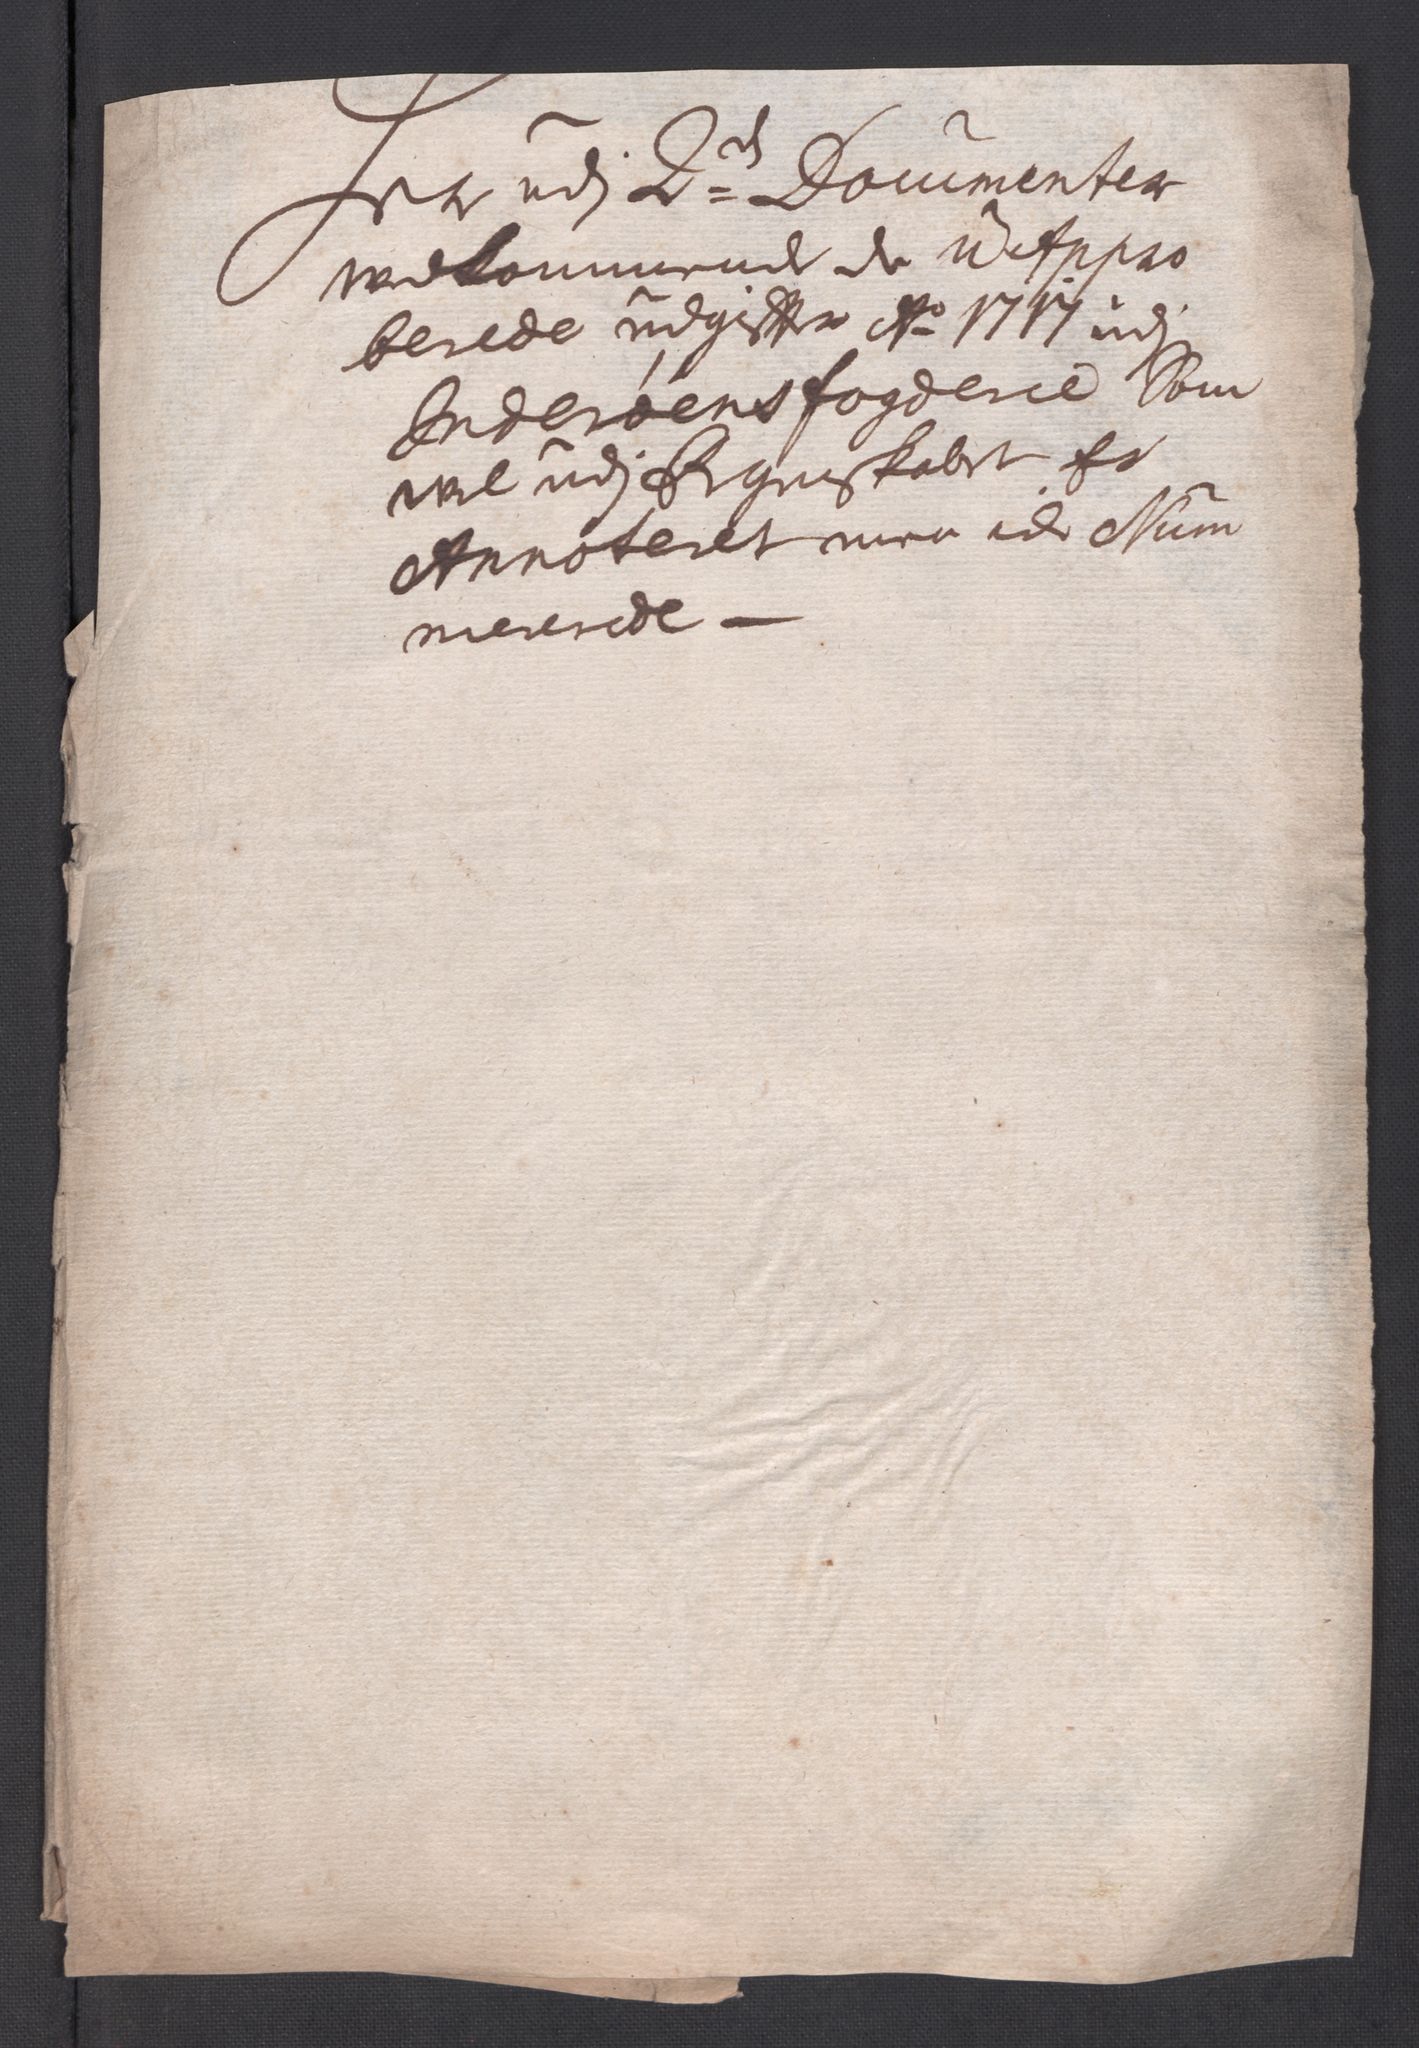 Her udj 2de Documenter
vedkommende de uApro
berede udgiffter Ao 1717 udj
Inderöens fogderie Som
vel udj Regnskabet er
Annoteret men iche Num
mererede —